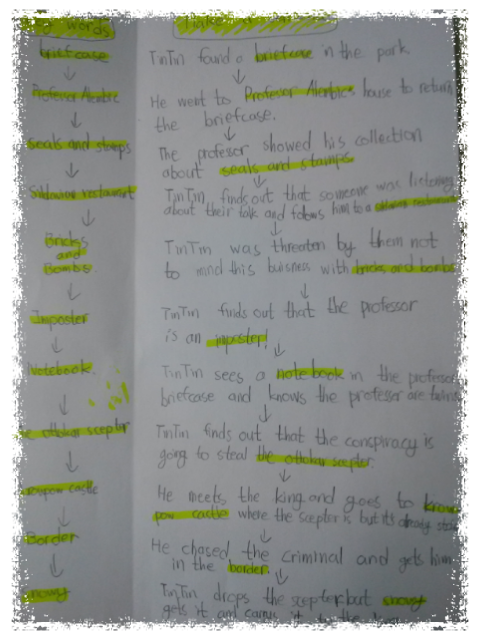 words
briefcase
Profesor Alembic
Seals and stamps
Sildavian restaurant
Bricks
and
Bombs
Imposter
Notebook
the ottokar scepter
kroupow castle
Border
snowy
make a
TinTin found a briefcase in the park
He went to Profesor Alembics house to return
the briefcase.
The profesor showed his collection
about seals and stamps
TinTin finds out that someone was listening
about their talk and follows him to a restaurant
TinTin was threaten by them not
to mind this buisness with bricks and bombs
TinTin finds out that the professor
is an imposter!
TinTin sees a note book in the professor
briefcase and knows the professor are twins
TinTin finds out that the conspiracy is
going to steal the ottokar scepter.
He meets the king and goes to krou
pow castle where the scepter is but its already stole
He chased the criminal and gets him
in the border.
TinTin drops the scepter but snowy
gets it and carry it to the